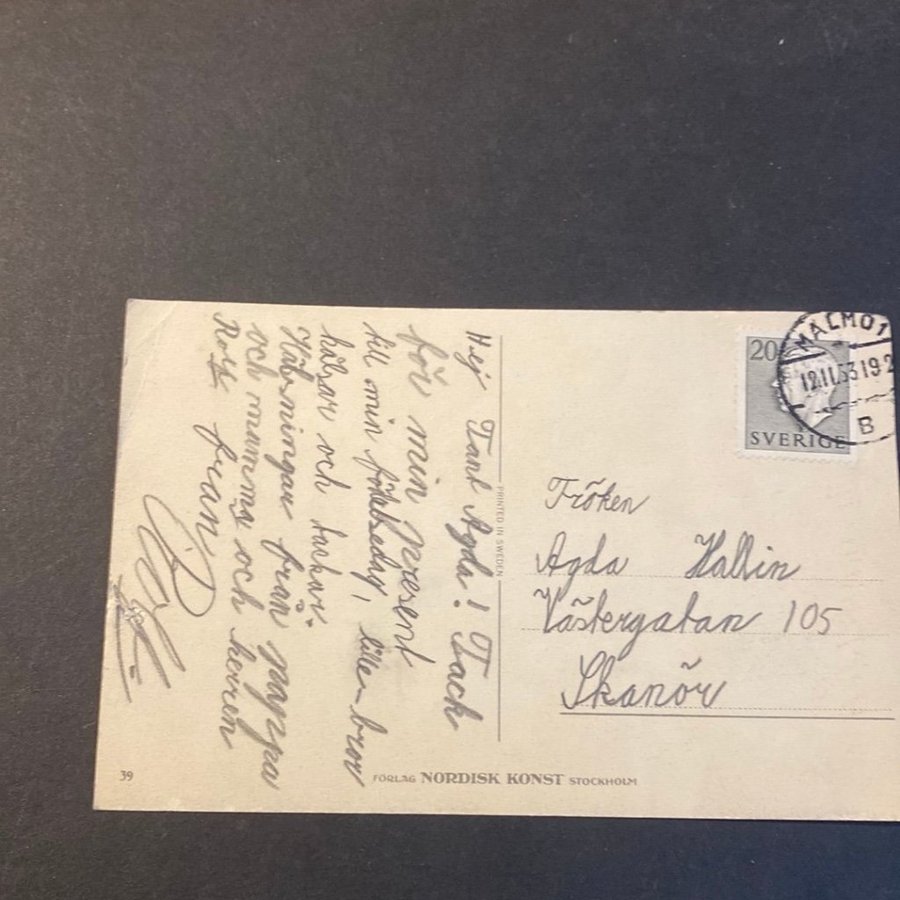 Hej Tant Agda! Tack
för min present
till min födelsedag, lille bror
hälsar och tackar
Hälsningar från pappa
och mamma och herren
Rolf från
39
PRINTED IN SWEDEN
FÖRLAG NORDISK KONST STOCKHOLM
20
SVERIGE
MALMÖ 1
12.11.53 19.2
B
Fröken
Agda Hallin
Västergatan 105
Skanör